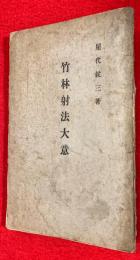 屋代鈜三著
竹林射法大意